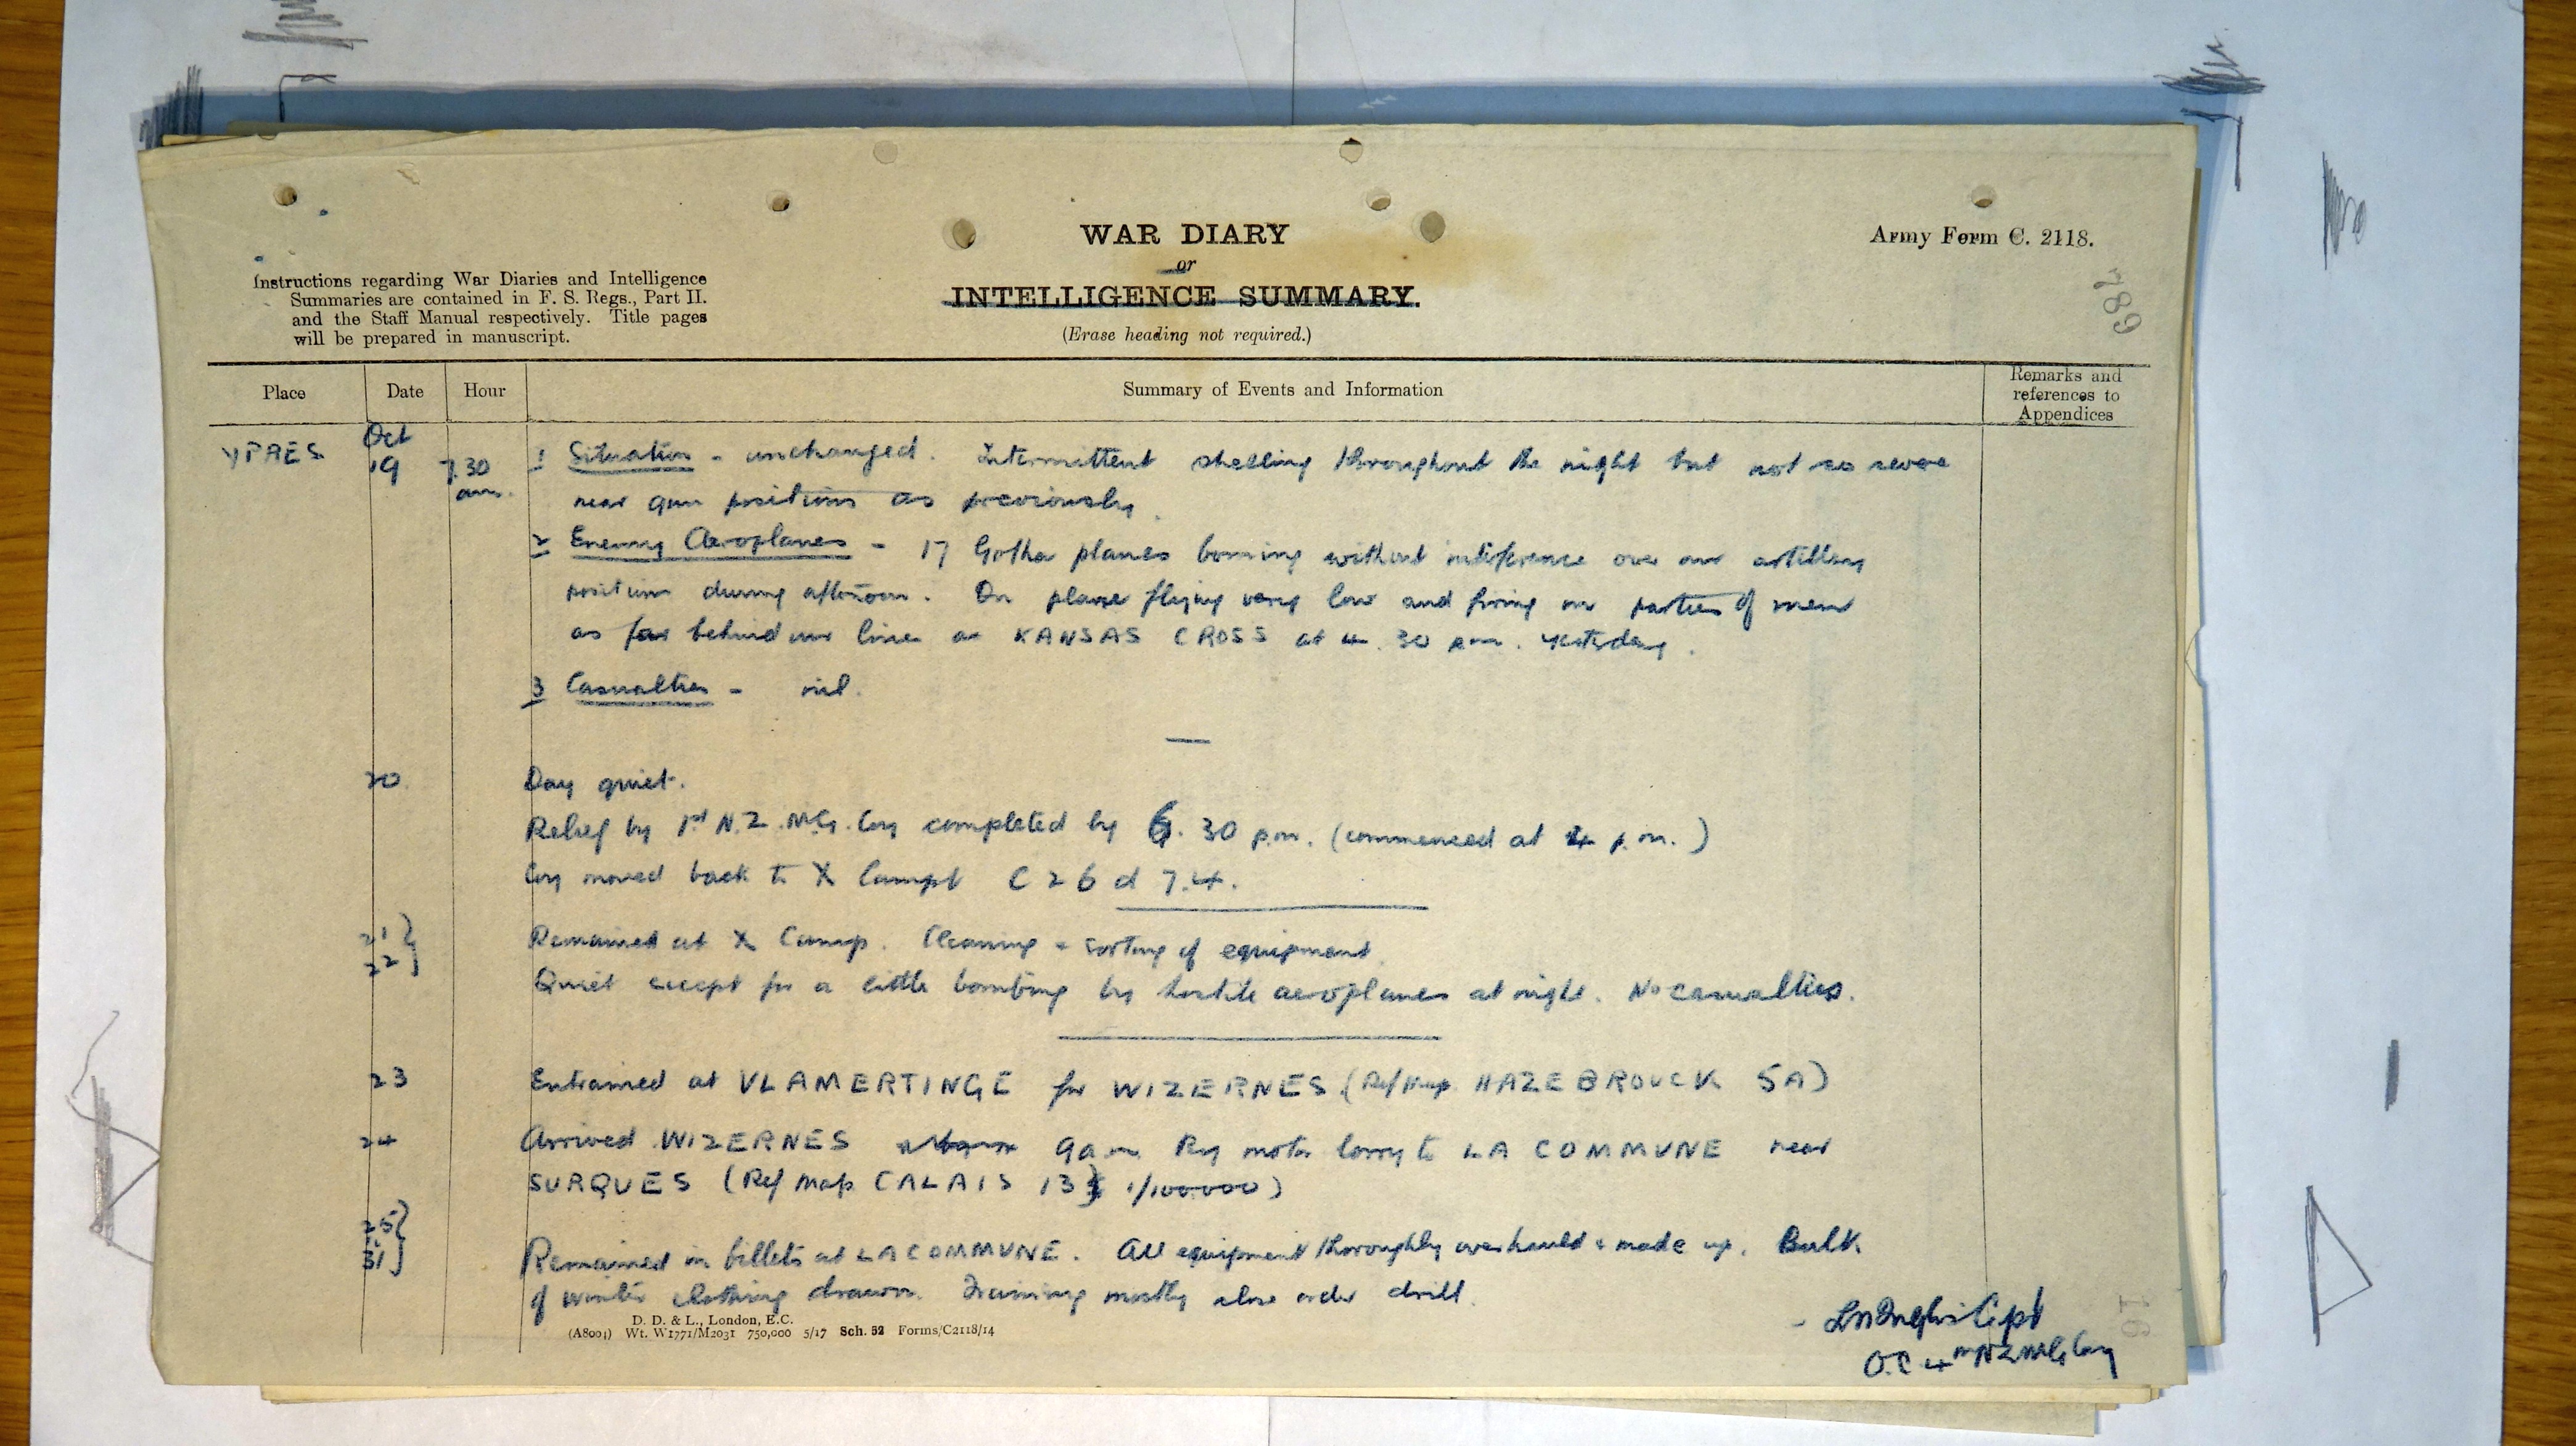 WAR DIARY
or
INTELLIGENCE SUMMARY.
(Erase heading not required.)
Army Form C. 2118.
789
Instructions regarding War Diaries and Intelligence
Summaries are contained in F. S. Regs., Part II.
and the Staff Manual respectively. Title pages
will be prepared in manuscript.
Place Date Hour Summary of Events and Information Remarks and references to Appendices
YPRES Oct 19 7.30 am. 1 Situation - unchanged. Intermittent shelling throughout the night but not so severe
near gun positions as previously.
2 Enemy Aeroplanes - 17 Gotha planes without interference over our artillery
position during afternoon. On plane flying very low and firing on parties of men
as far behind our lines as KANSAS CROSS at 4.30 pm. yesterday.
3 Casualties - nil.
20. Day quiet.
Relief by 1st N.Z. M.G. Coy completed by 6.30 p.m. (commenced at 4 p.m.)
Coy moved back to X Camp C 26 d 7.4.
21 } 22 } Remained at X Camp. Cleaning & sorting of equipment.
Quiet except for a little bombing by hostile aeroplanes at night. No casualties.
23 Entrained at VLAMERTINGE for WIZERNES (Ref Map. HAZEBROUCK 5A)
24 Arrived WIZERNES 9 a.m. By motor lorry to LA COMMUNE near
SURQUES (Ref Map CALAIS 13 1/100.000)
25 } 31 } Remained in billets at LA COMMUNE. All equipment thoroughly overhauled & made up. Bulk
of winter clothing drawn. Training mostly close order drill.
D. D. & L., London, E.C.
(A8001) Wt. W1771/M2031 750,000 5/17 Sch. 52 Forms/C2118/14
Capt
O.C. 4th NZ MG Coy
16